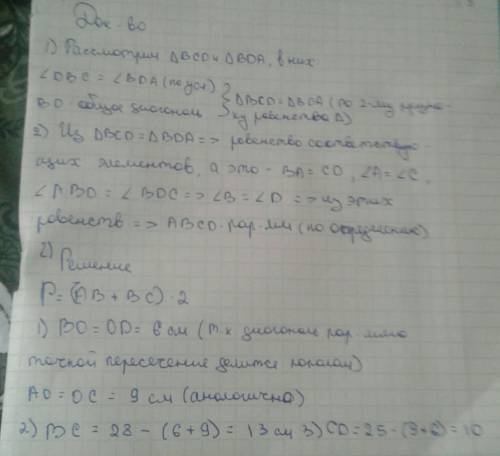 Док-во
1) Рассмотрим ΔBCD и ΔBDA, в них:
∠DBC = ∠BDA (по усл)
BD общая диагональ } ΔBCD = ΔBDA (по 2-му призна-
ку равенства Δ)
2) Из ΔBCD = ΔBDA => равенство соответствую-
щих элементов, а это - BA = CD, ∠A = ∠C,
∠ABD = ∠BDC => ∠B = ∠D => из этих
равенств => ABCD - пар-мм (по
2) Решение
P = (AB + BC) · 2
1) BO = OD = 6 см (т.к диагонали пар-мма
точкой пересечения делятся пополам)
AO = OC = 9 см (аналогично)
2) BC = 28 - (6 + 9) = 13 см 3) CD = 25 - (9+6) = 10